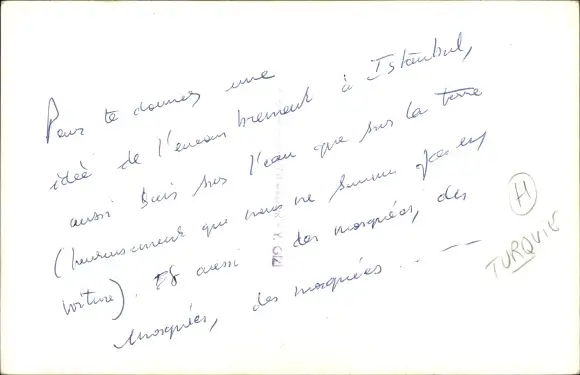 Pour te donner une
idée de l'encombrement à Istanbul,
aussi bien sur l'eau que sur la terre
(heureusement que nous ne sommes pas en
voiture). Et aussi des mosquées, des
mosquées, des mosquées . . . — —
H
TURQUIE